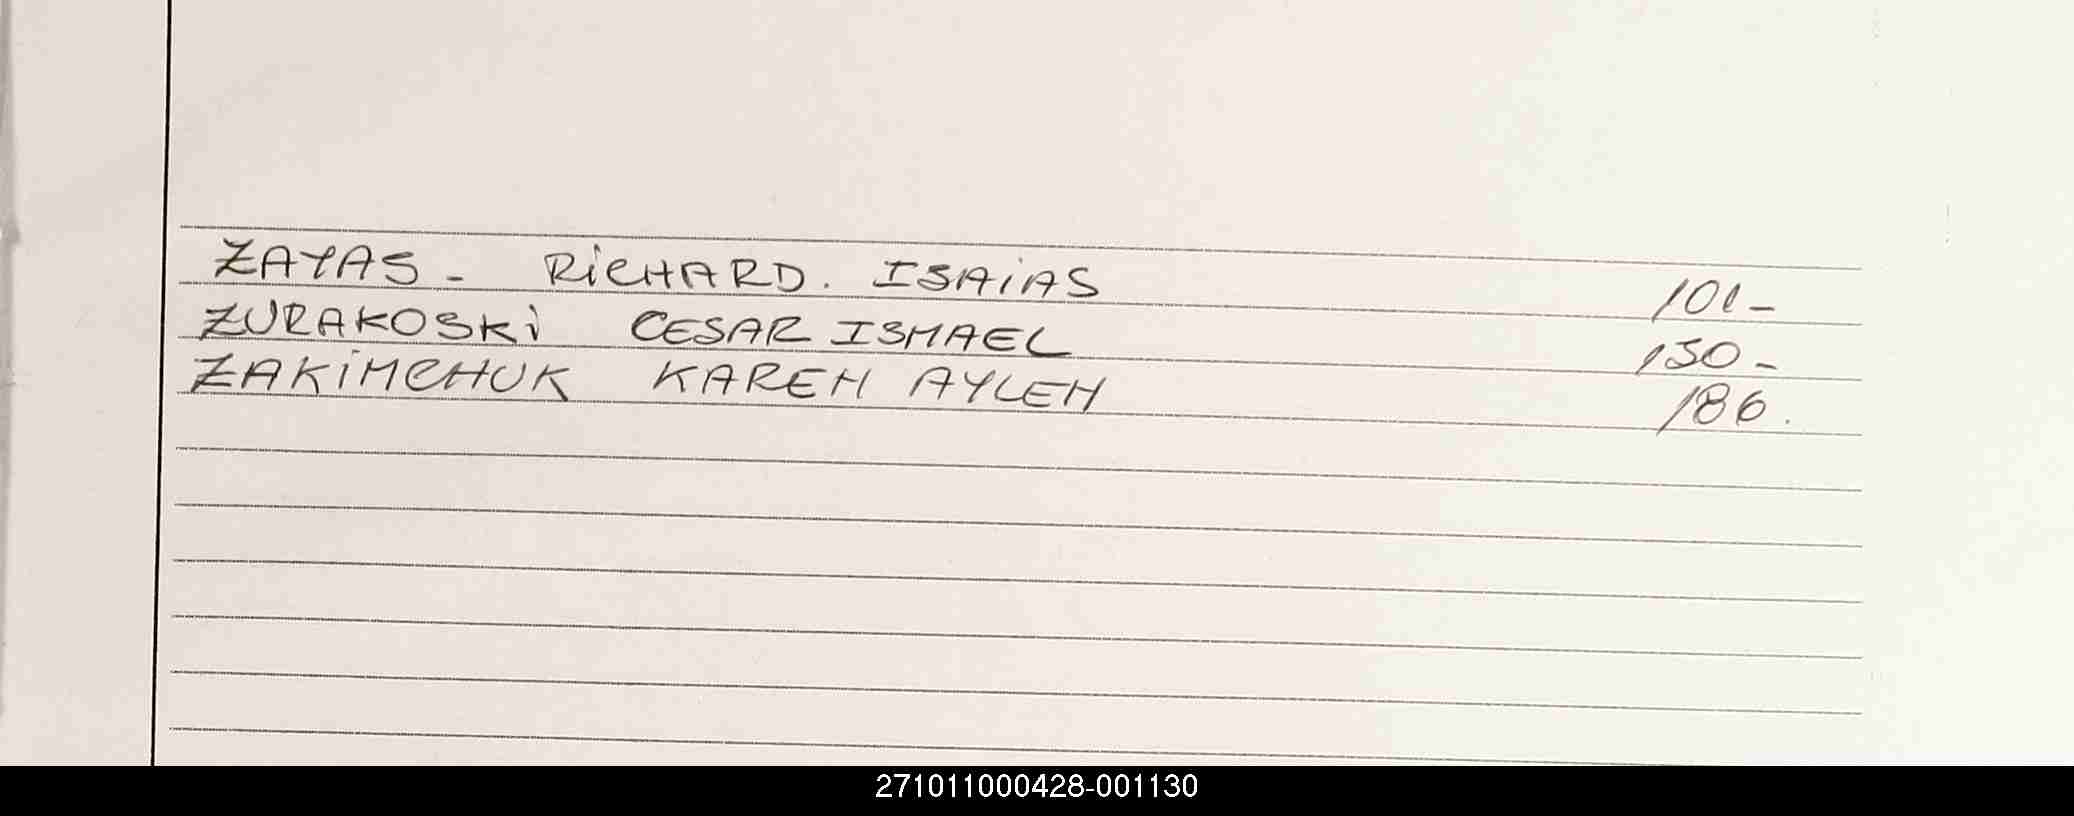 ZAYAS - RICHARD. ISAIAS 101-
ZURAKOSKI CESAR ISMAEL 150-
ZAKIMCHUK KAREN AYLEN 186.
271011000428-001130